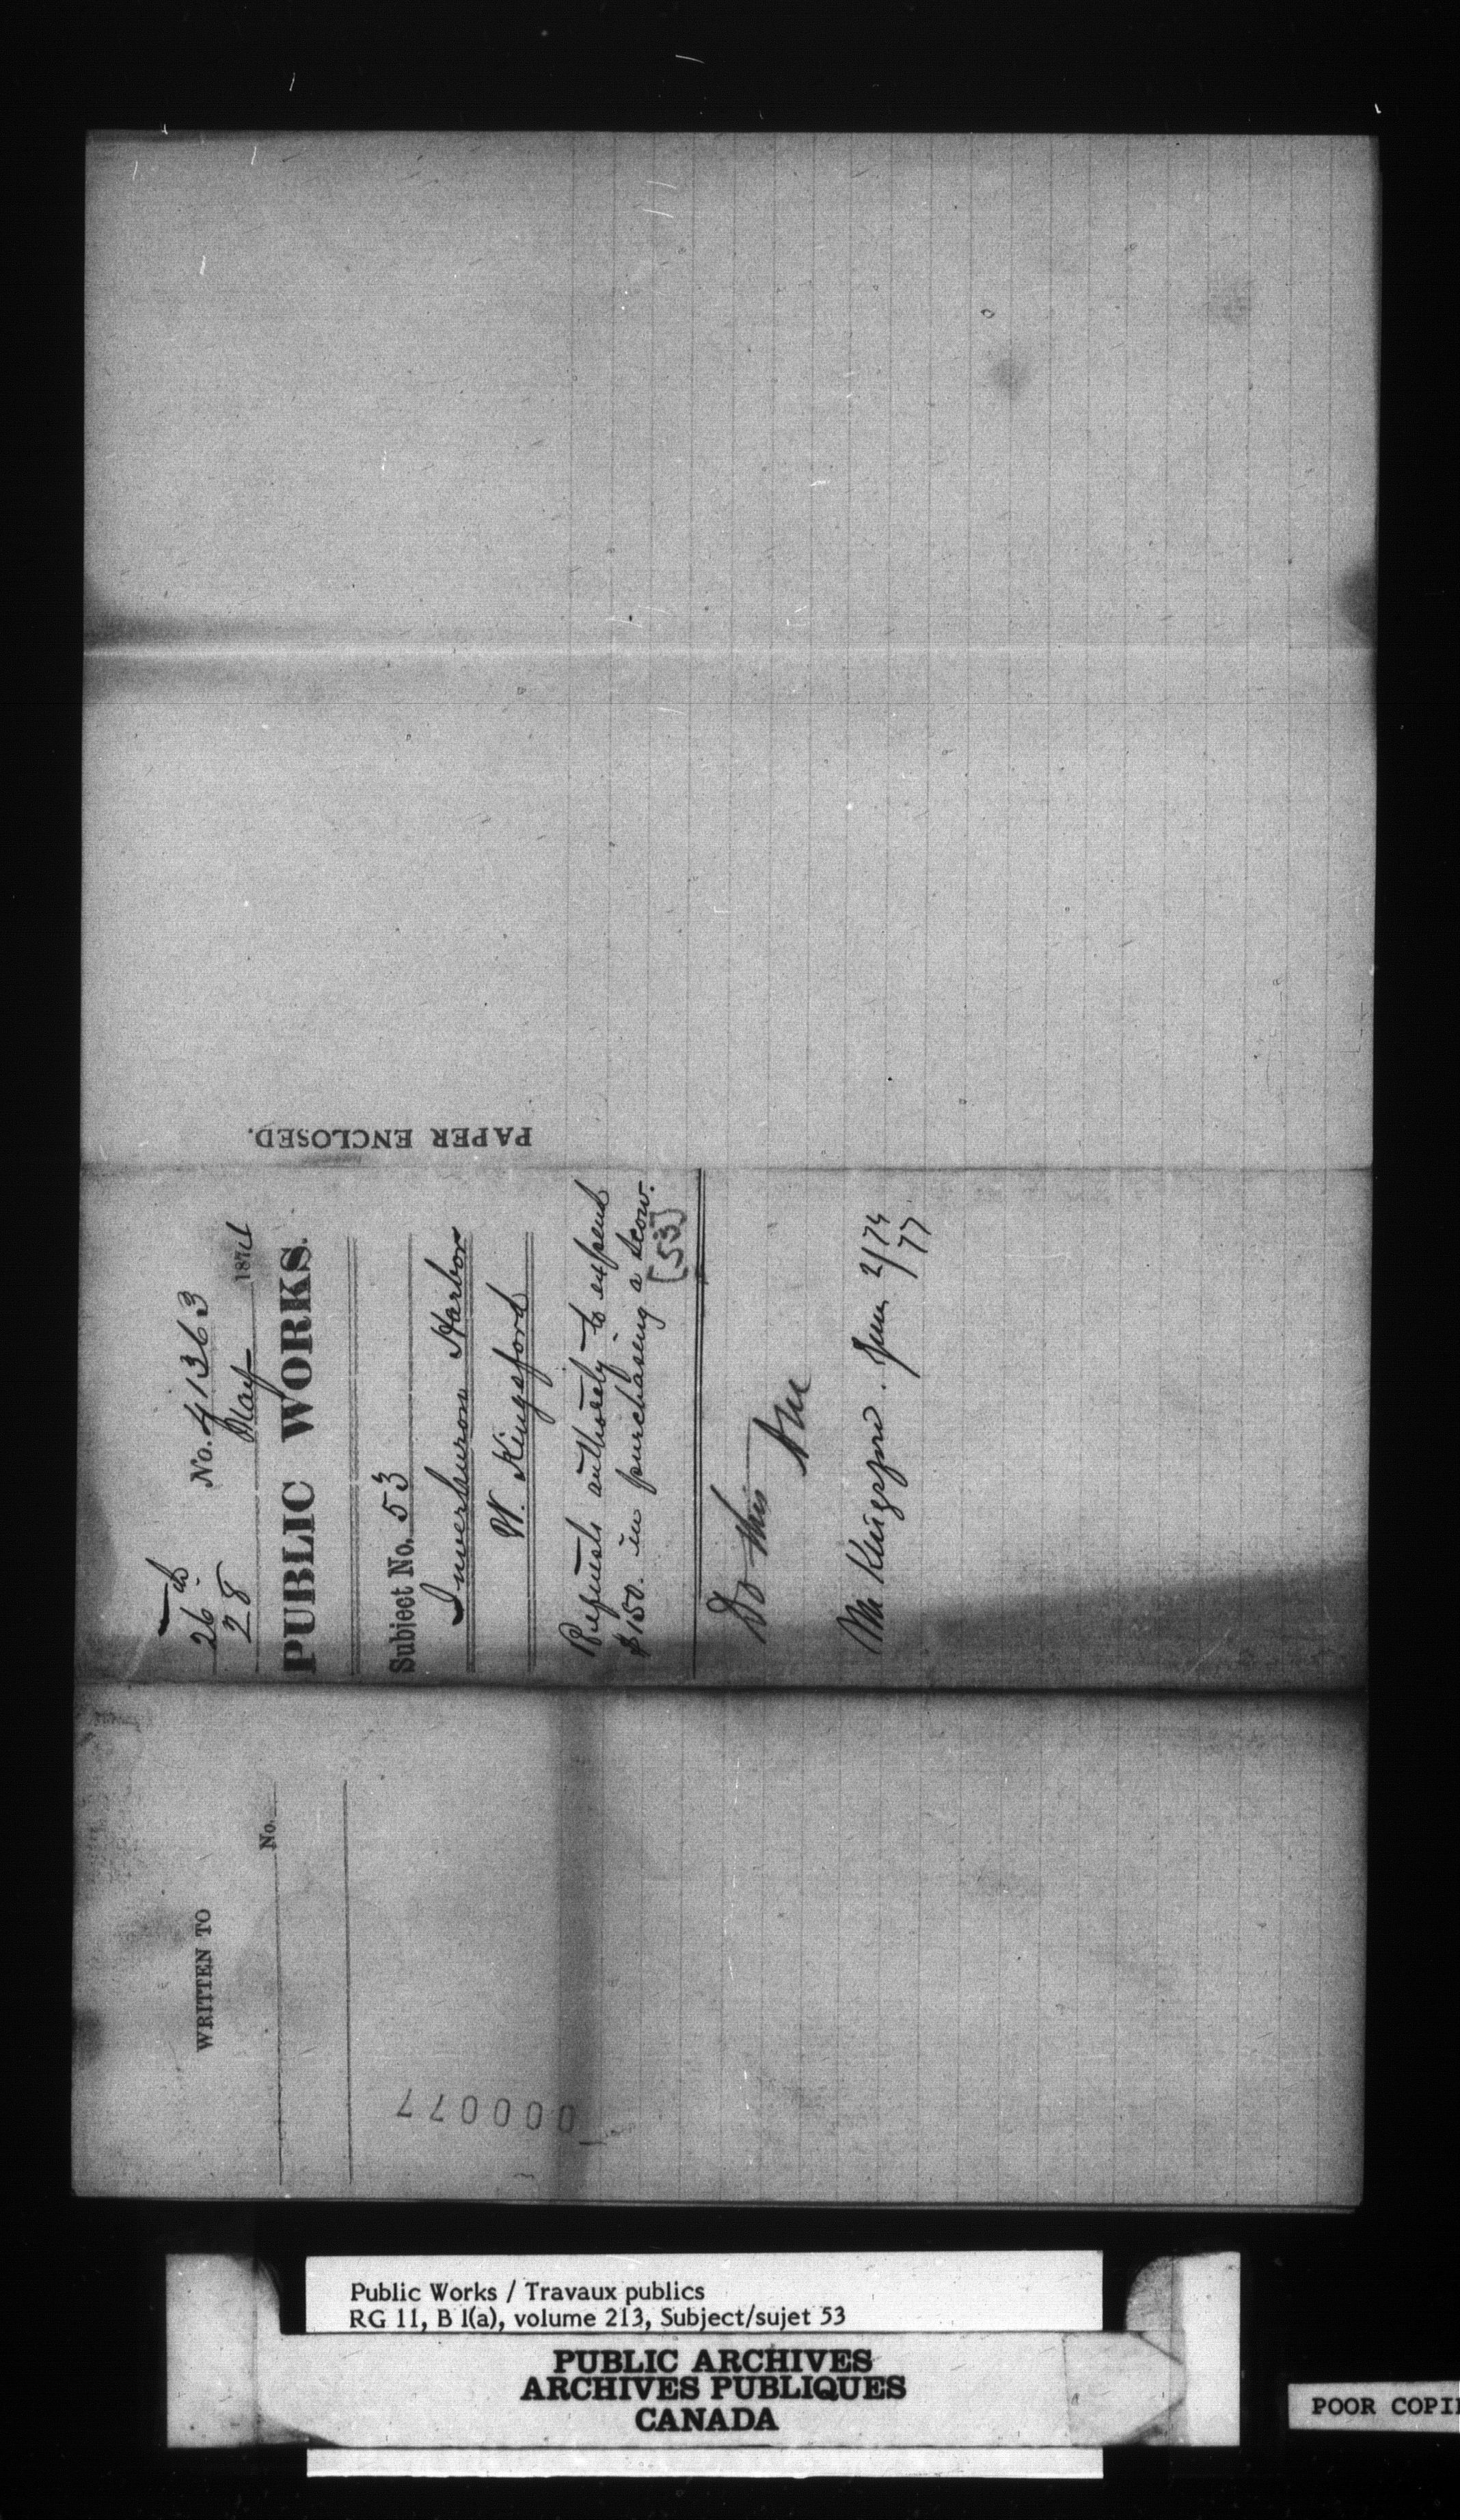 26th No. 41363
28 May 1874
PUBLIC WORKS.
Subject No. 53
Inverhuron Harbor
W. Kingsford
Requests authority to expend
$150. in purchasing a scow.
[53]
Do this
Mr Kingsford. June 2/74
77
PAPER ENCLOSED.
WRITTEN TO
No.
000077
Public Works / Travaux publics
RG 11, B 1(a), volume 213, Subject/sujet 53
PUBLIC ARCHIVES
ARCHIVES PUBLIQUES
CANADA
POOR COPI